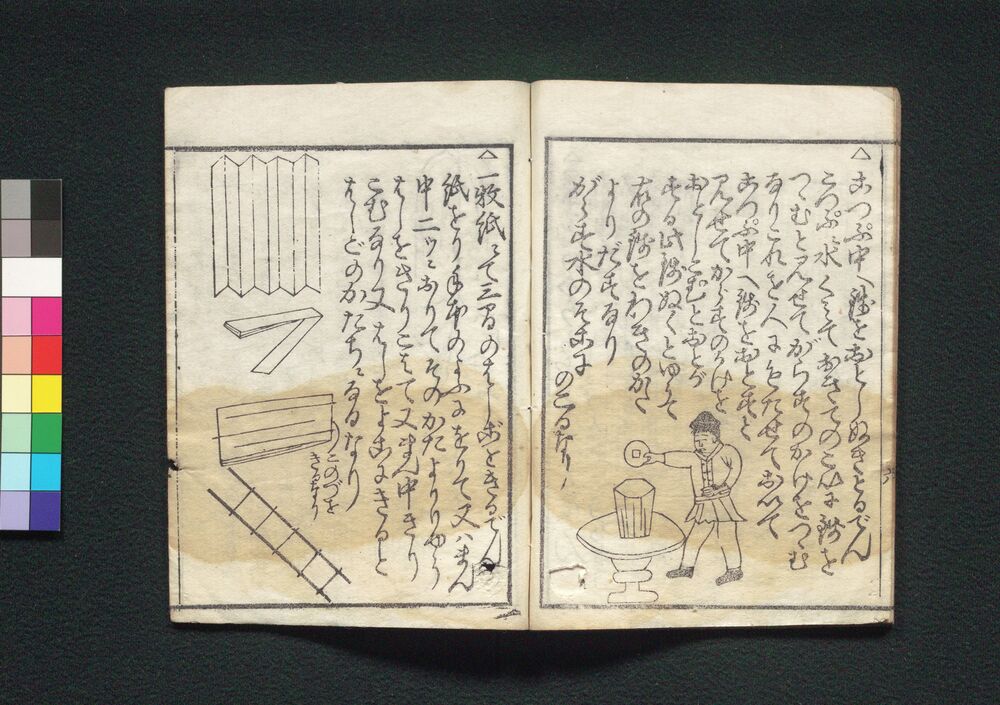 △こつぷ中へ銭をおとしぬきとるでん
こつぷに水くみておきてのこひに銭を
つゝむと見せてがらすのかけをつゝむ
なりこれを人にもたせておいて
こつぷ中へ銭をおとすと
見せてからすのかけを
おとしこむとおとが
する此銭ぬくとゆふて
右の銭をわきのかた
よりだすなり
がらすは水のそこに
のこるなり
△一枚紙にて三間のはしごをきるでん
紙をとり手本のよふにをりて又ハまん
中二ツにおりてそのかたよりりやう
はしをきりこみて又まん中きり
こむなり又はしをよこにきると
はしごのかたちになるなり
このづを
きるなり